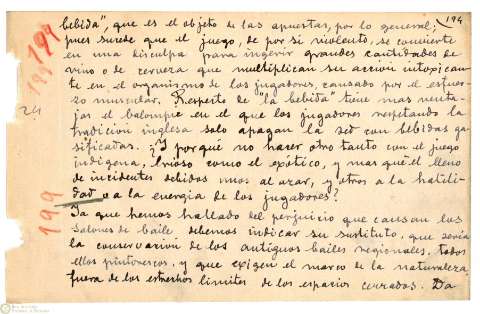 194
bebida", que es el objeto de las apuestas, por lo general,
pues sucede que el juego, de por si violento, se convierte
en una disculpa para ingerir grandes cantidades de
vino o de cerveza que multiplican su accion intoxican-
te en el organismo de los jugadores, causado por el esfuer-
zo muscular. Respecto de "la bebida" tiene mas venta-
jas el balompie en el que los jugadores respetando la
tradicion inglesa solo apagan la sed con bebidas ga-
sificadas. ¿Y porqué no hacer otro tanto con el juego
indígena, brioso como el exótico, y mas que él lleno
de incidentes debidos unos al azar, y otros a la habili-
dad o a la energia de los jugadores?
Ya que hemos hallado del perjuicio que causan los
salones de baile debemos indicar su sustituto, que seria
la conservacion de los antiguos bailes regionales, todos
ellos pintorescos, y que exigen el marco de la naturaleza
fuera de los estrechos limites de los espacios cerrados. Da
199
24
199